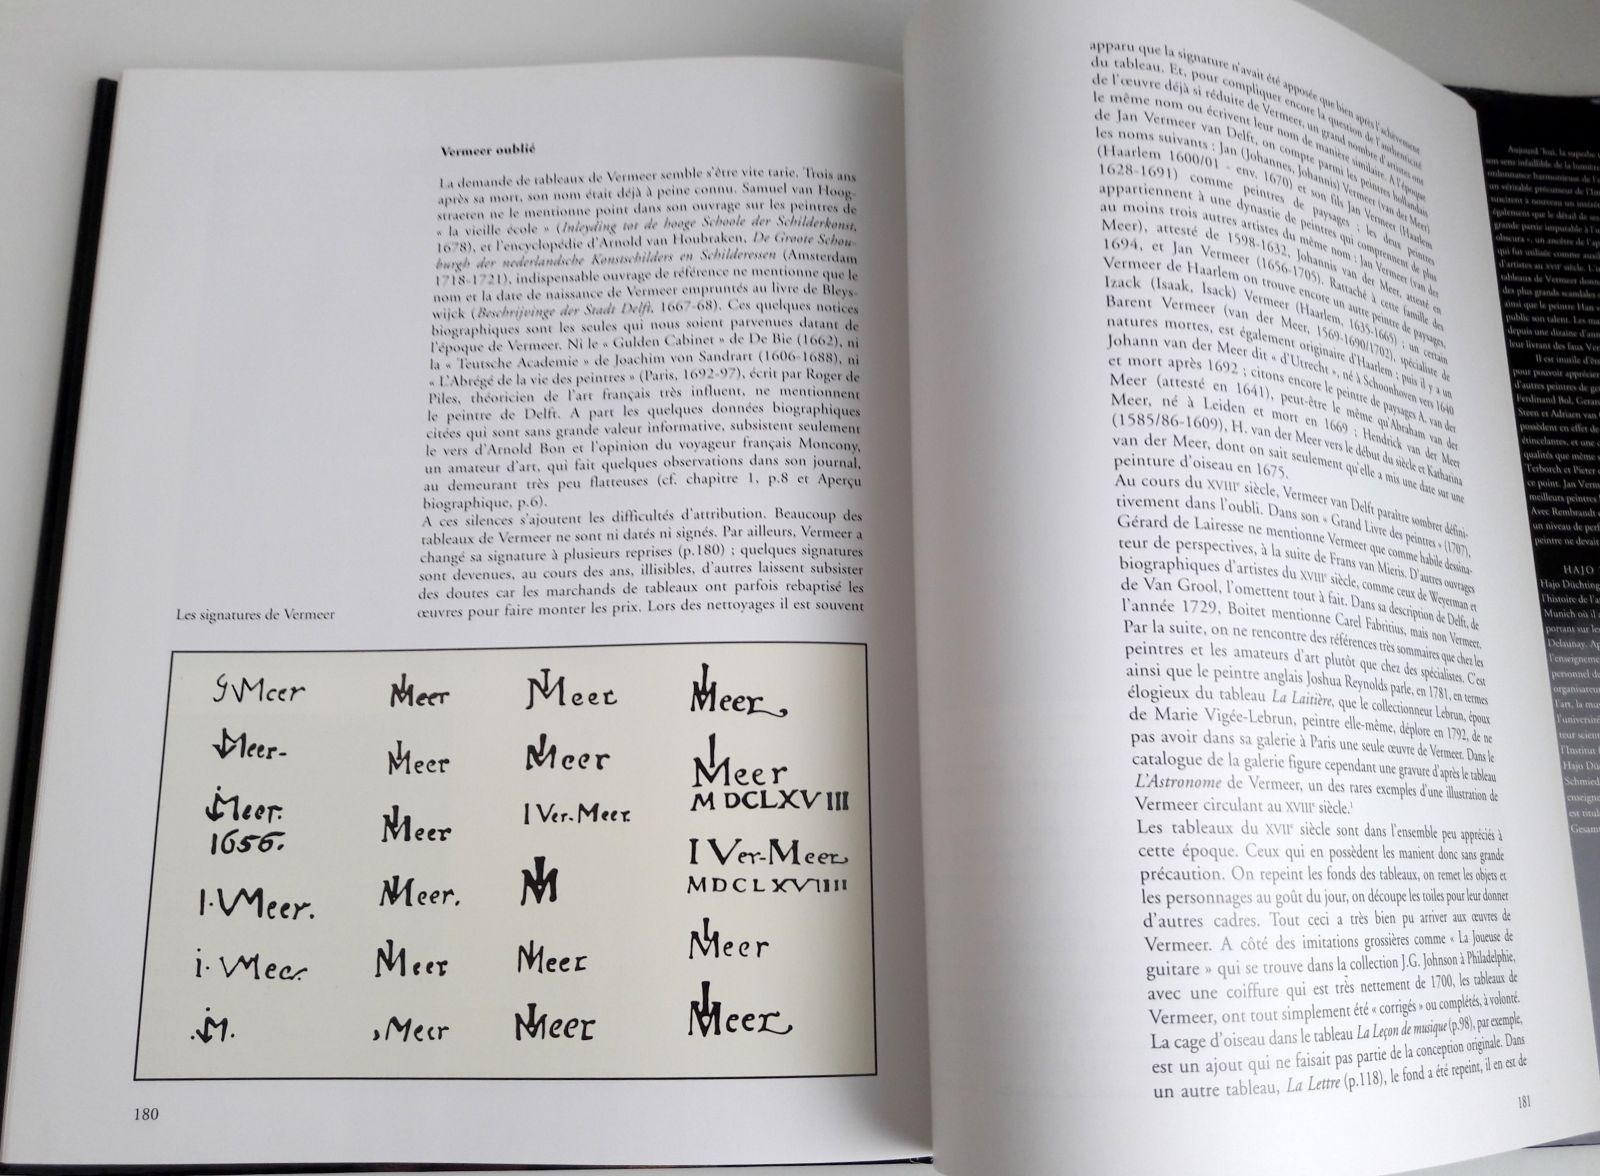 Vermeer oublié
La demande de tableaux de Vermeer semble s'être vite tarie. Trois ans
après sa mort, son nom était déjà à peine connu. Samuel van Hoog-
straeten ne le mentionne point dans son ouvrage sur les peintres de
« la vieille école » (Inleyding tot de hooge Schoole der Schilderkonst,
1678), et l'encyclopédie d'Arnold van Houbraken, De Groote Schou-
burgh der nederlandsche Konstschilders en Schilderessen (Amsterdam
1718-1721), indispensable ouvrage de référence ne mentionne que le
nom et la date de naissance de Vermeer empruntés au livre de Bleys-
wijck (Beschrijvinge der Stadt Delft, 1667-68). Ces quelques notices
biographiques sont les seules qui nous soient parvenues datant de
l'époque de Vermeer. Ni le « Gulden Cabinet » de De Bie (1662), ni
la « Teutsche Academie » de Joachim von Sandrart (1606-1688), ni
« L'Abrégé de la vie des peintres » (Paris, 1692-97), écrit par Roger de
Piles, théoricien de l'art français très influent, ne mentionnent
le peintre de Delft. A part les quelques données biographiques
citées qui sont sans grande valeur informative, subsistent seulement
le vers d'Arnold Bon et l'opinion du voyageur français Moncony,
un amateur d'art, qui fait quelques observations dans son journal,
au demeurant très peu flatteuses (cf. chapitre 1, p.8 et Aperçu
biographique, p.6).
A ces silences s'ajoutent les difficultés d'attribution. Beaucoup des
tableaux de Vermeer ne sont ni datés ni signés. Par ailleurs, Vermeer a
changé sa signature à plusieurs reprises (p.180) ; quelques signatures
sont devenues, au cours des ans, illisibles, d'autres laissent subsister
des doutes car les marchands de tableaux ont parfois rebaptisé les
œuvres pour faire monter les prix. Lors des nettoyages il est souvent
Les signatures de Vermeer
Meer Meer Meer Meer
Meer- Meer Meer Meer
MDCLXVIII
Meer. Meer I Ver-Meer
1656.
I Ver-Meer
MDCLXVIIII
I·VMeer. Meer. M
i·VMeer Meer Meer Meer
M. Meer Meer Meer
180
apparu que la signature n'avait été apposée que bien après l'achèvement
du tableau. Et, pour compliquer encore la question de l'authenticité
de l'œuvre déjà si réduite de Vermeer, un grand nombre d'artistes ont
le même nom ou écrivent leur nom de manière similaire. A l'époque
de Jan Vermeer van Delft, on compte parmi les peintres hollandais
les noms suivants : Jan (Johannes, Johannis) Vermeer (van der Meer)
(Haarlem 1600/01 - env. 1670) et son fils Jan Vermeer (Haarlem
1628-1691) comme peintres de paysages ; les deux peintres
appartiennent à une dynastie de peintres qui comprennent de plus
au moins trois autres artistes du même nom : Jan Vermeer (van der
Meer), attesté de 1598-1632, Johannis van der Meer, attesté en
1694, et Jan Vermeer (1656-1705). Rattaché à cette famille des
Vermeer de Haarlem on trouve encore un autre peintre de paysages,
Izack (Isaak, Isack) Vermeer (Haarlem, 1635-1665) ; un certain
Barent Vermeer (van der Meer, 1569-1690/1702), spécialiste de
natures mortes, est également originaire d'Haarlem ; puis il y a un
Johann van der Meer dit « d'Utrecht », né à Schoonhoven vers 1640
et mort après 1692 ; citons encore le peintre de paysages A. van der
Meer (attesté en 1641), peut-être le même qu'Abraham van der
Meer, né à Leiden et mort en 1669 ; Hendrick van der Meer
(1585/86-1609), H. van der Meer vers le début du siècle et Katharina
van der Meer, dont on sait seulement qu'elle a mis une date sur une
peinture d'oiseau en 1675.
Au cours du XVIIIe siècle, Vermeer van Delft paraître sombrer défini-
tivement dans l'oubli. Dans son « Grand Livre des peintres » (1707),
Gérard de Lairesse ne mentionne Vermeer que comme habile dessina-
teur de perspectives, à la suite de Frans van Mieris. D'autres ouvrages
biographiques d'artistes du XVIIIe siècle, comme ceux de Weyerman et
de Van Grool, l'omettent tout à fait. Dans sa description de Delft, de
l'année 1729, Boitet mentionne Carel Fabritius, mais non Vermeer.
Par la suite, on ne rencontre des références très sommaires que chez les
peintres et les amateurs d'art plutôt que chez des spécialistes. C'est
ainsi que le peintre anglais Joshua Reynolds parle, en 1781, en termes
élogieux du tableau La Laitière, que le collectionneur Lebrun, époux
de Marie Vigée-Lebrun, peintre elle-même, déplore en 1792, de ne
pas avoir dans sa galerie à Paris une seule œuvre de Vermeer. Dans le
catalogue de la galerie figure cependant une gravure d'après le tableau
L'Astronome de Vermeer, un des rares exemples d'une illustration de
Vermeer circulant au XVIIIe siècle.1
Les tableaux du XVIIe siècle sont dans l'ensemble peu appréciés à
cette époque. Ceux qui en possèdent les manient donc sans grande
précaution. On repeint les fonds des tableaux, on remet les objets et
les personnages au goût du jour, on découpe les toiles pour leur donner
d'autres cadres. Tout ceci a très bien pu arriver aux œuvres de
Vermeer. A côté des imitations grossières comme « La Joueuse de
guitare » qui se trouve dans la collection J.G. Johnson à Philadelphie,
avec une coiffure qui est très nettement de 1700, les tableaux de
Vermeer, ont tout simplement été « corrigés » ou complétés, à volonté.
La cage d'oiseau dans le tableau La Leçon de musique (p.98), par exemple,
est un ajout qui ne faisait pas partie de la conception originale. Dans
un autre tableau, La Lettre (p.118), le fond a été repeint, il en est de
181
Aujourd'hui, la superbe
son sens infaillible de la lumière
ordonnance harmonieuse de
un véritable précurseur de
suscitent à nouveau un
également que le détail de ses
grande partie imputable à
obscura », un ancêtre de
qui fut utilisée comme
d'artistes au XVIIe siècle.
tableaux de Vermeer
des plus grands scandales
ainsi que le peintre Han
public son talent. Les
depuis une dizaine
leur livrant des faux
Il est inutile
pour pouvoir apprécier
d'autres peintres de
Ferdinand Bol,
Steen et Adriaen van
possèdent en effet de
étincelantes, et une
qualités que même
Terborch et Pieter
ce point. Jan
meilleurs peintres
Avec Rembrandt
un niveau de
peintre ne devait
HAJO
Hajo Düchting
l'histoire de
Munich où il
portant sur les
Delaunay.
personnel de
l'art, la
l'Institut
Hajo
est